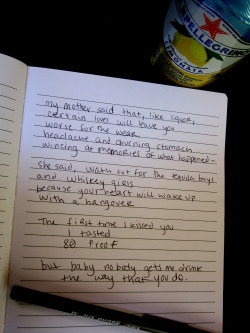 S.PELLEGRINO
LIMONATA
My mother said that, like liquor,
certain lives will leave you
worse for the wear
headache and churning stomach
wincing at memories of what happened—
She said, watch out for the tequila boys
and whiskey girls
because your heart will wake up
with a hangover
The first time I kissed you
I tasted
80 Proof
but baby nobody gets me drunk
the way that you do.